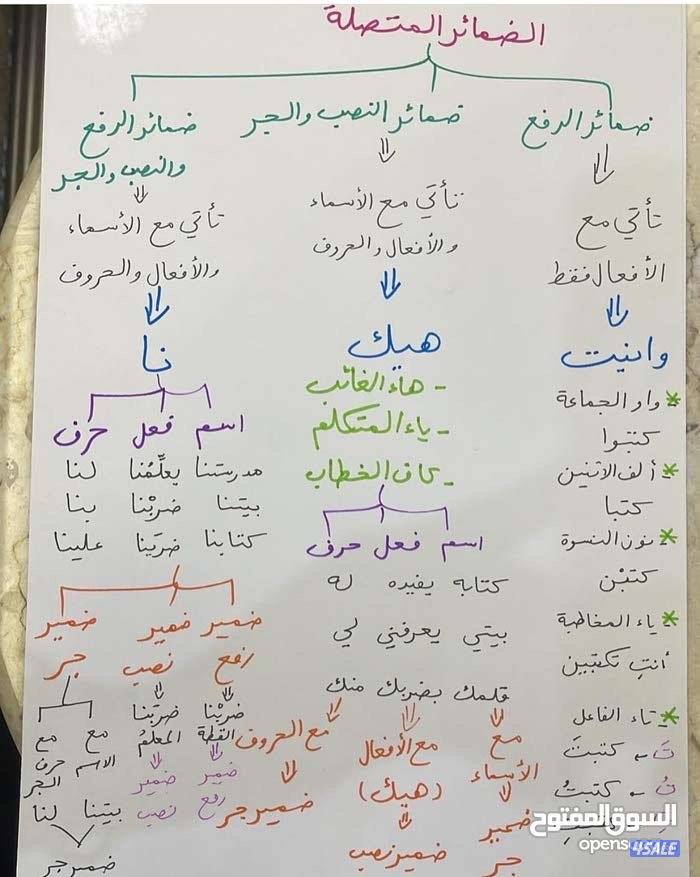 الضمائر المتصلة
ضمائر الرفع
تأتي مع
الأفعال فقط
وانيت
* واو الجماعة
كتبوا
* ألف الاثنين
كتبا
* نون النسوة
كتبْن
* ياء المخاطبة
أنتِ تكتبين
* تاء الفاعل
تَ - كتبتَ
تُ - كتبتُ
ضمائر النصب والجر
تأتي مع الأسماء
والأفعال والحروف
هيك
- هاء الغائب
- ياء المتكلم
- كاف الخطاب
اسم فعل حرف
كتابه يفيده له
بيتي يعرفني لي
قلمك يضربك منك
مع الأسماء
ضمير جر
مع الأفعال
(هيك)
ضمير نصب
مع الحروف
ضمير جر
ضمائر الرفع
والنصب والجر
تأتي مع الأسماء
والأفعال والحروف
نا
اسم فعل حرف
مدرستنا يعلّمُنا لنا
بيتنا ضربْنا بنا
كتابنا ضربَنا علينا
ضمير ضمير ضمير
رفع نصب جر
ضربْنا
القطة
ضمير
رفع
ضربَنا
المعلمُ
ضمير
نصب
مع
الاسم
بيتنا
مع
حرف
الجر
لنا
ضمير جر
السوق المفتوح
opensooq
4SALE